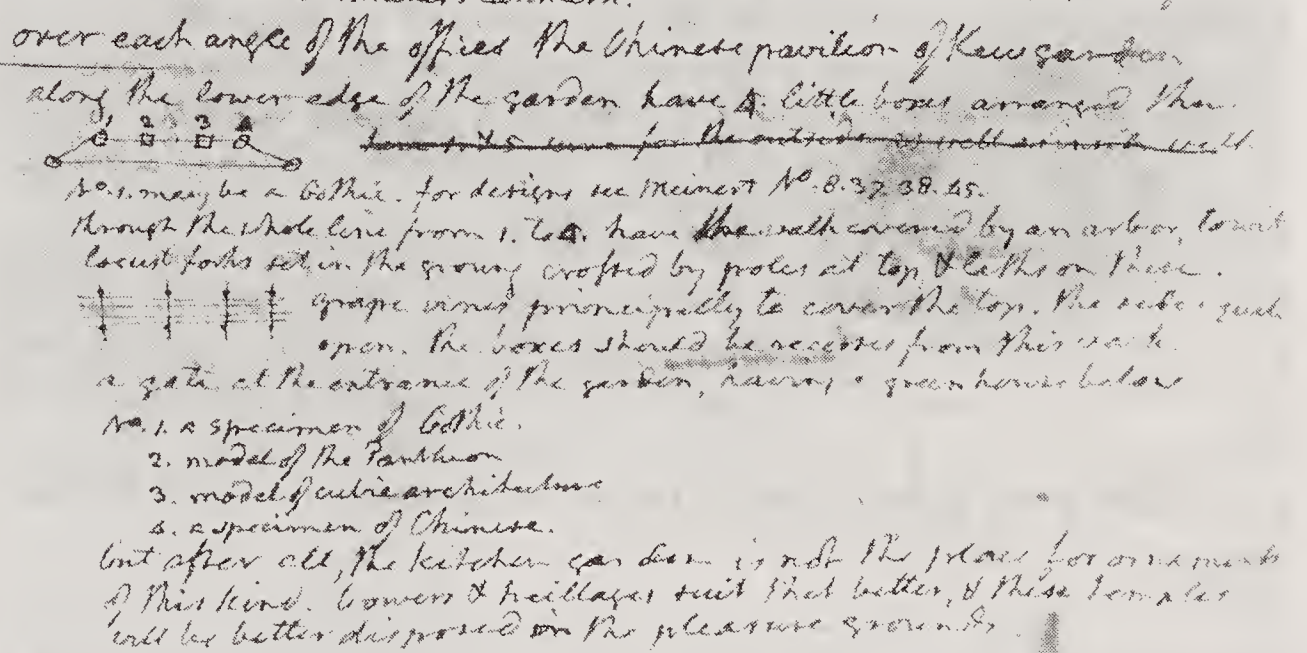 over each angle of the offices the Chinese pavilion of Kew garden
along the lower edge of the garden have 4. little boxes arranged thus
1 2 3 4
for the outside as well as inside
No. 1. may be a Gothic. for designs see Meinert No. 8. 37. 38. 45.
through the whole line from 1. to 4. have the walk covered by an arbor, to wit
locust forks set in the ground crossed by poles at top & laths on these.
grape vines principally to cover the top. the sides quite
open. the boxes should be recesses from this walk.
a gate at the entrance of the garden, having a green house below
No. 1. a specimen of Gothic.
2. model of the Pantheon
3. model of cubic architecture
4. a specimen of Chinese.
but after all, the kitchen garden is not the place for ornaments
of this kind. bowers & treillages suit that better, & these temples
will be better disposed in the pleasure grounds.